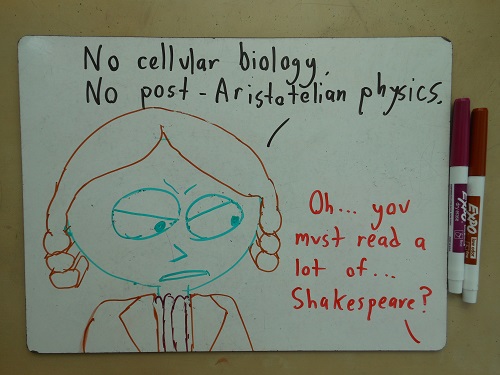 No cellular biology.
No post-Aristotelian physics.
Oh... you
must read a
lot of...
Shakespeare?
EXPO
EXPO